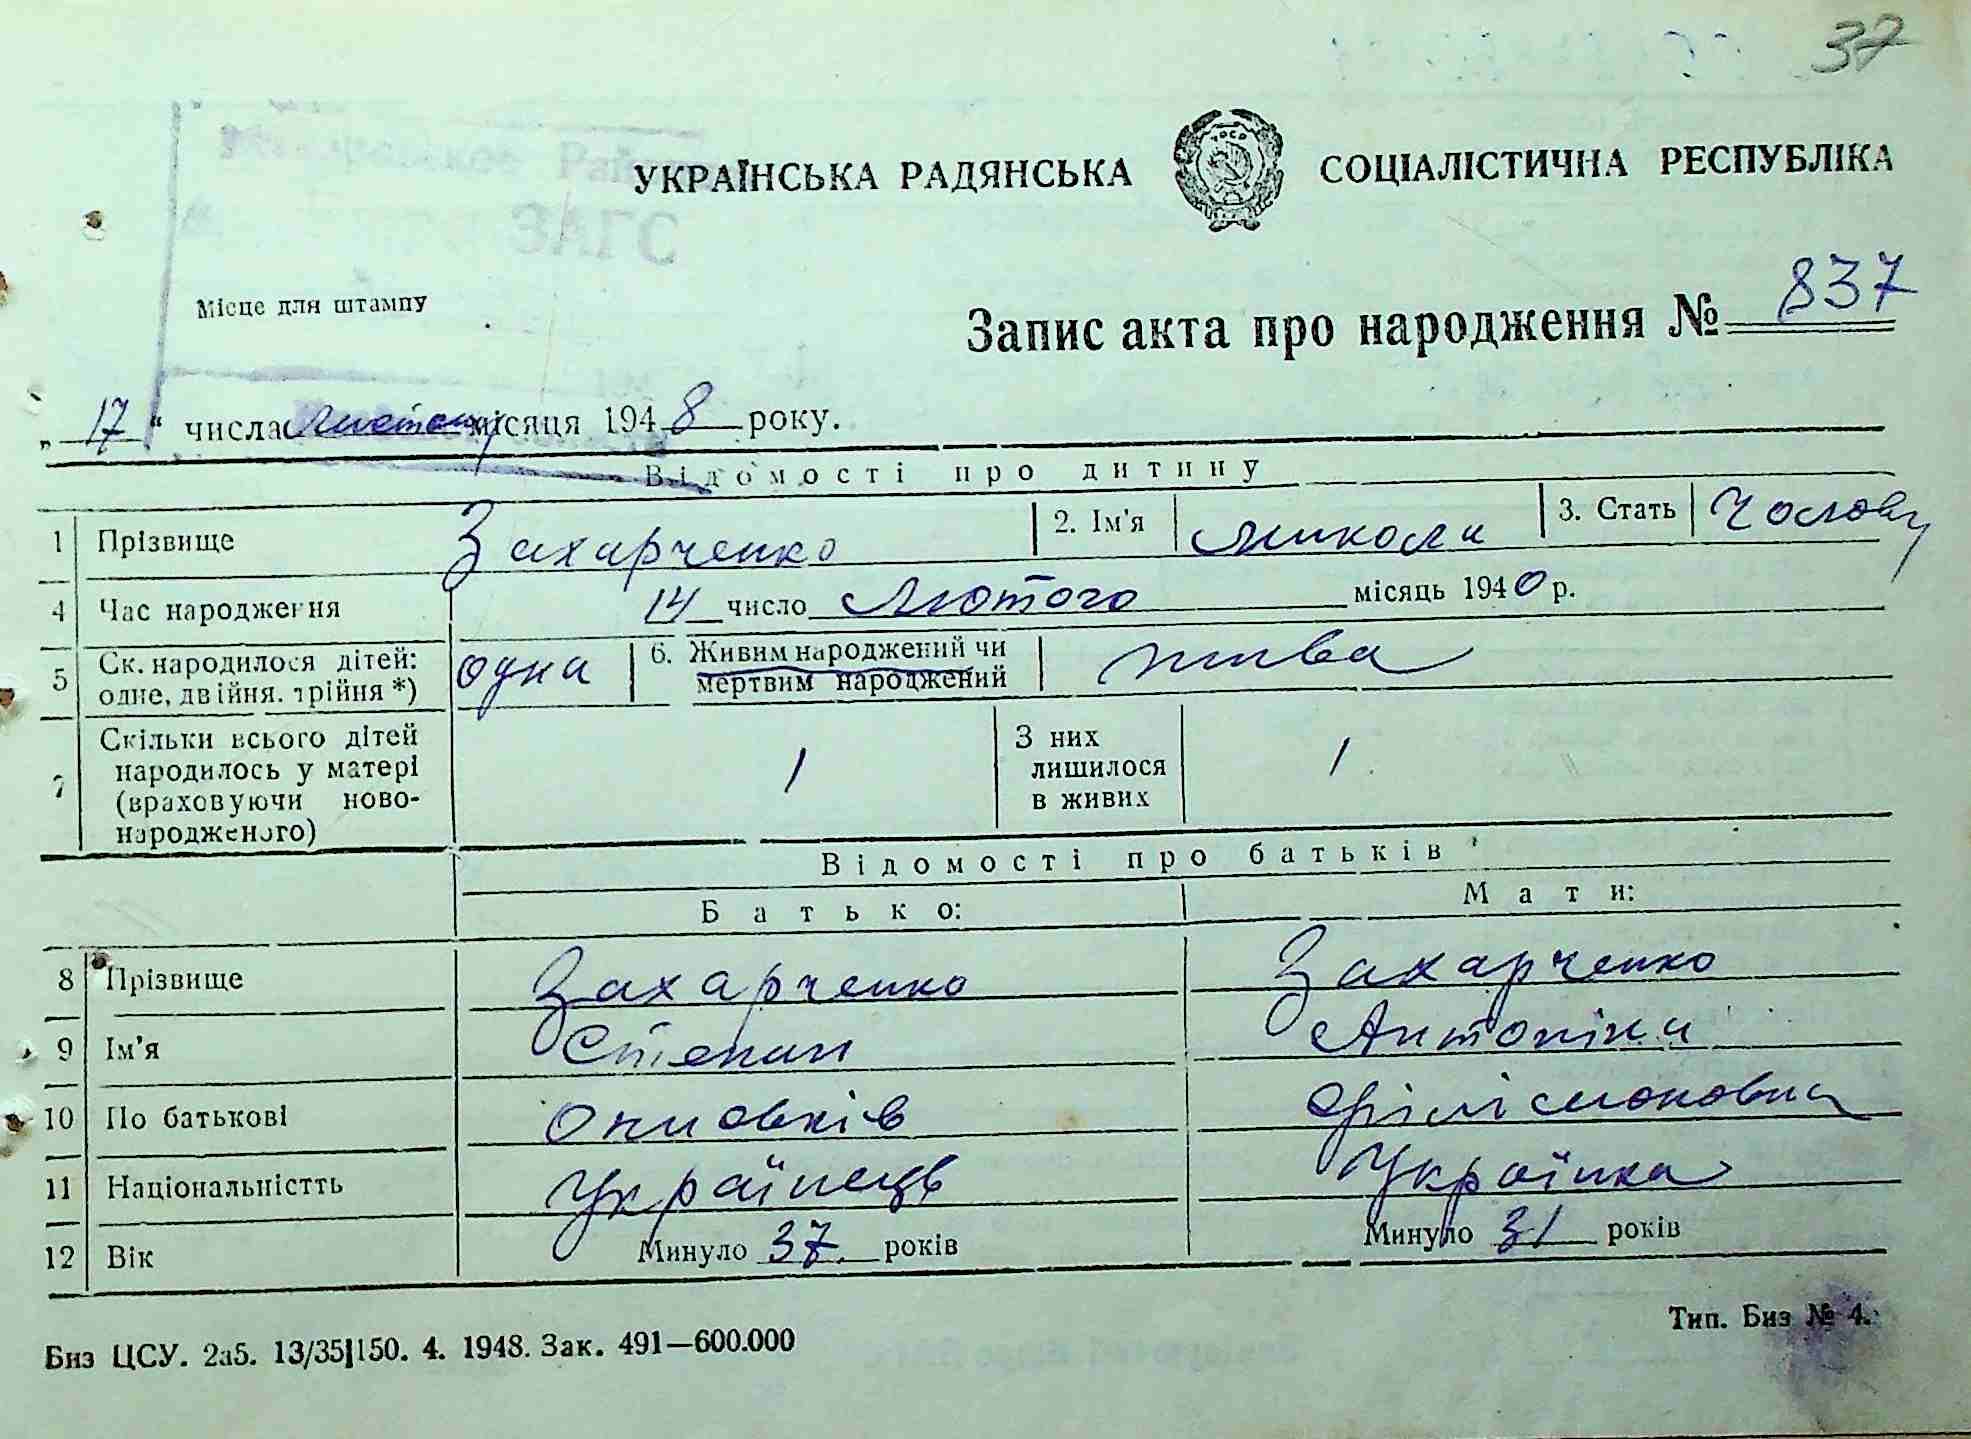 37
УКРАЇНСЬКА РАДЯНСЬКА СОЦІАЛІСТИЧНА РЕСПУБЛІКА
ЗАГС
Місце для штампу
Запис акта про народження № 837
„ 17 “ числа місяця 1948 року.
Відомості про дитину
1 Прізвище Захарченко 2. Ім'я Микола 3. Стать Чолову
4 Час народження 14 число Лютого місяць 1940 р.
5 Ск. народилося дітей: одне, двійня, трійня *) одна 6. Живим народжений чи мертвим народжений жива
7 Скільки всього дітей народилось у матері (враховуючи ново-народженого) 1 З них лишилося в живих 1
Відомості про батьків
Батько: Мати:
8 Прізвище Захарченко Захарченко
9 Ім'я Степан Антоніна
10 По батькові
11 Національністть Українець Українка
12 Вік Минуло 37 років Минуло 31 років
Биз ЦСУ. 2аб. 13/35|150. 4. 1948. Зак. 491—600.000 Тип. Биз № 4.